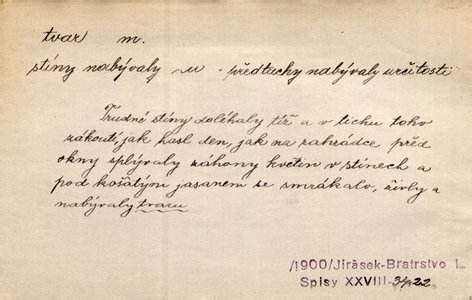 tvar m.
stíny nabývaly ~u - předtuchy nabývaly určitosti
Trudné stíny doléhaly tíž a v tichu toho
zákoutí, jak hasl den, jak na zahrádce před
okny splývaly záhony květin v stínech a
pod košatým jasanem se smrákalo, žívly a
nabývaly tvaru
/1900/Jirásek-Bratrstvo I.
Spisy XXVIII-